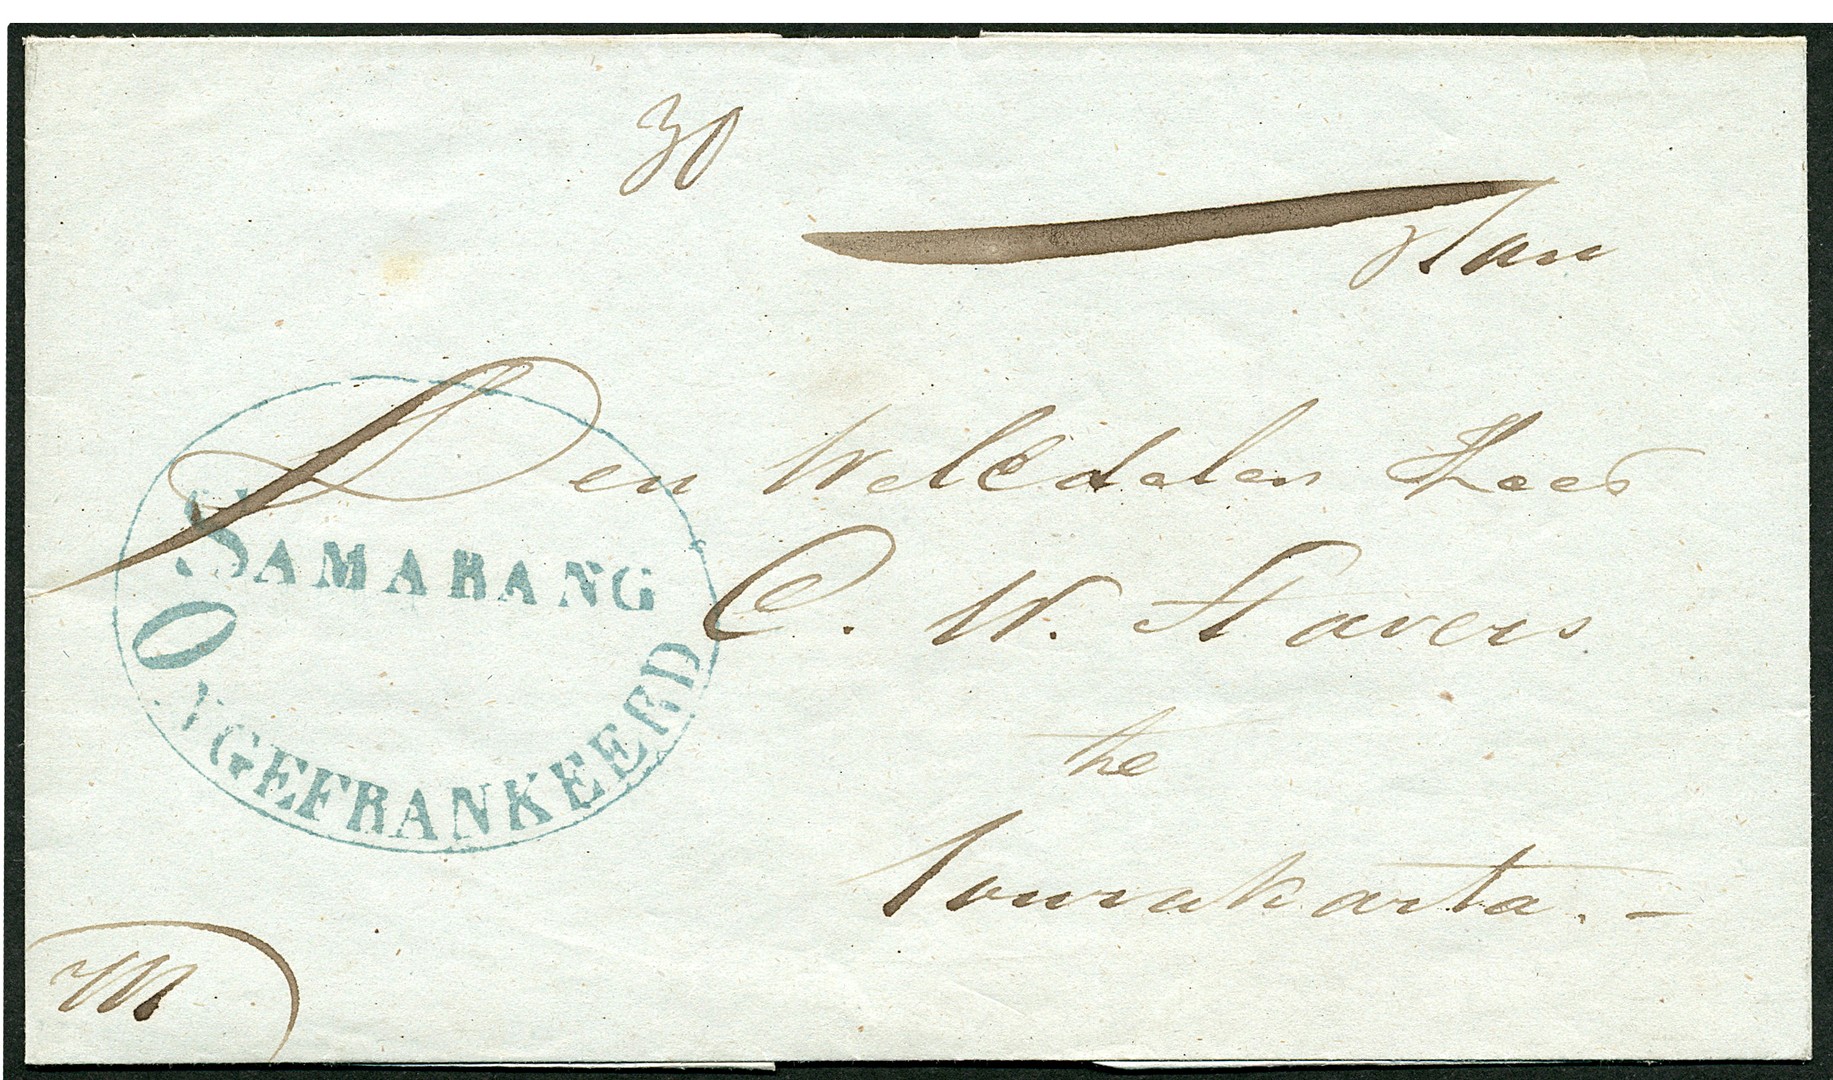 30
Aan
Den WelEdelen Heer
SAMARANG
ONGEFRANKEERD
C. W. Stavers
te
Sourakarta. -
M